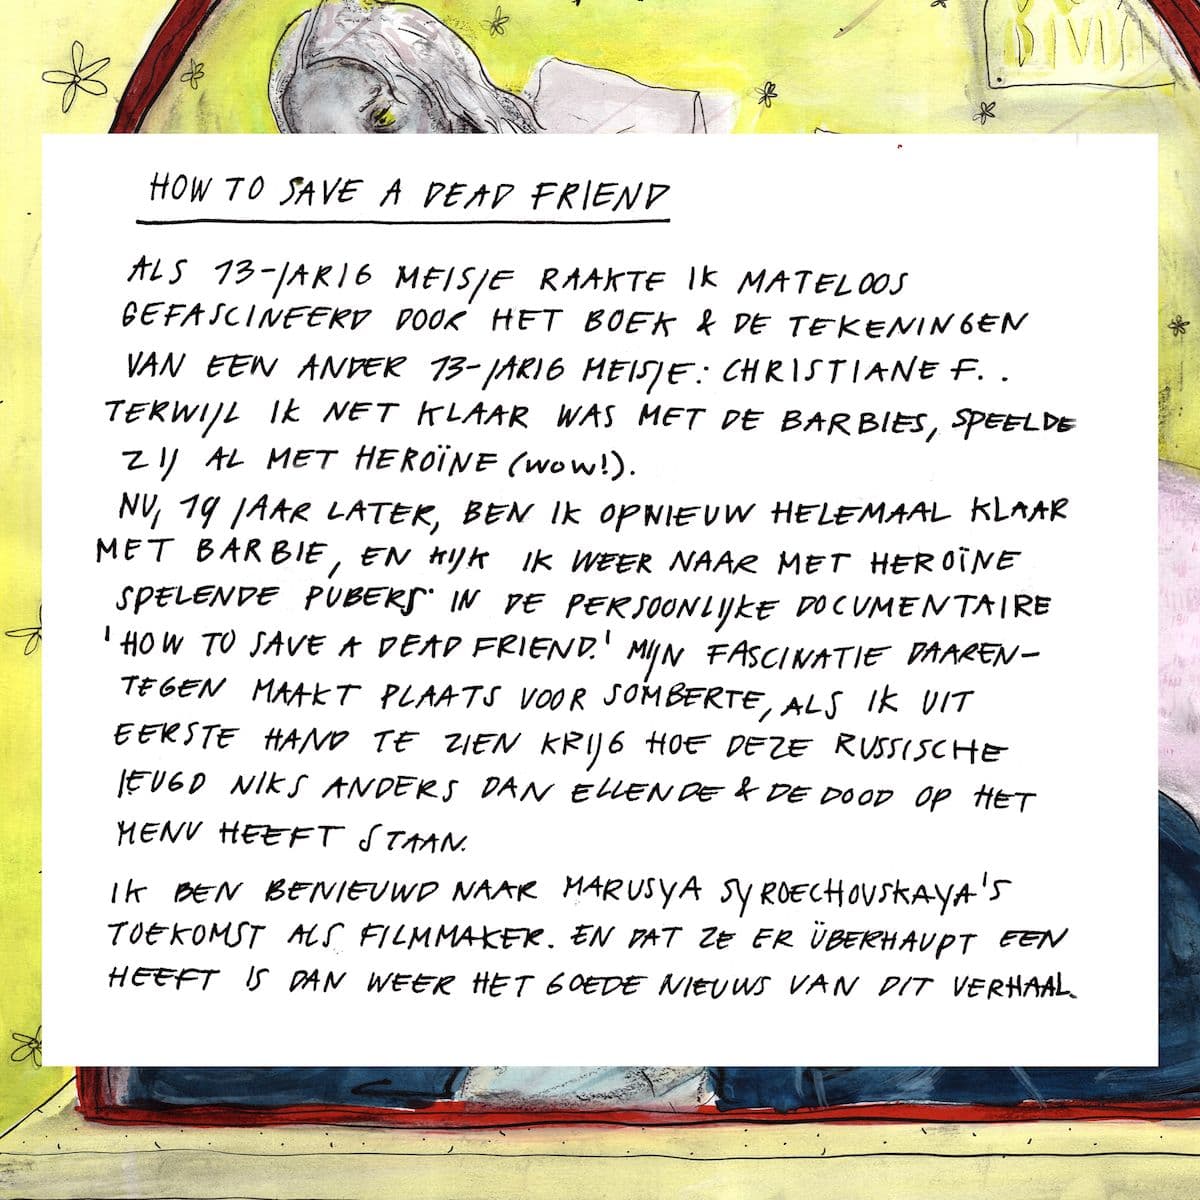 HOW TO SAVE A DEAD FRIEND
ALS 13-JARIG MEISJE RAAKTE IK MATELOOS
GEFASCINEERD DOOR HET BOEK & DE TEKENINGEN
VAN EEN ANDER 13-JARIG MEISJE: CHRISTIANE F. .
TERWIJL IK NET KLAAR WAS MET DE BARBIES, SPEELDE
ZIJ AL MET HEROÏNE (WOW!).
NU, 19 JAAR LATER, BEN IK OPNIEUW HELEMAAL KLAAR
MET BARBIE, EN KIJK IK WEER NAAR MET HEROÏNE
SPELENDE PUBERS IN DE PERSOONLIJKE DOCUMENTAIRE
'HOW TO SAVE A DEAD FRIEND.' MIJN FASCINATIE DAAREN-
TEGEN MAAKT PLAATS VOOR SOMBERTE, ALS IK UIT
EERSTE HAND TE ZIEN KRIJG HOE DEZE RUSSISCHE
JEUGD NIKS ANDERS DAN ELLENDE & DE DOOD OP HET
MENU HEEFT STAAN.
IK BEN BENIEUWD NAAR MARUSYA SYROECHOVSKAYA'S
TOEKOMST ALS FILMMAKER. EN DAT ZE ER ÜBERHAUPT EEN
HEEFT IS DAN WEER HET GOEDE NIEUWS VAN DIT VERHAAL.